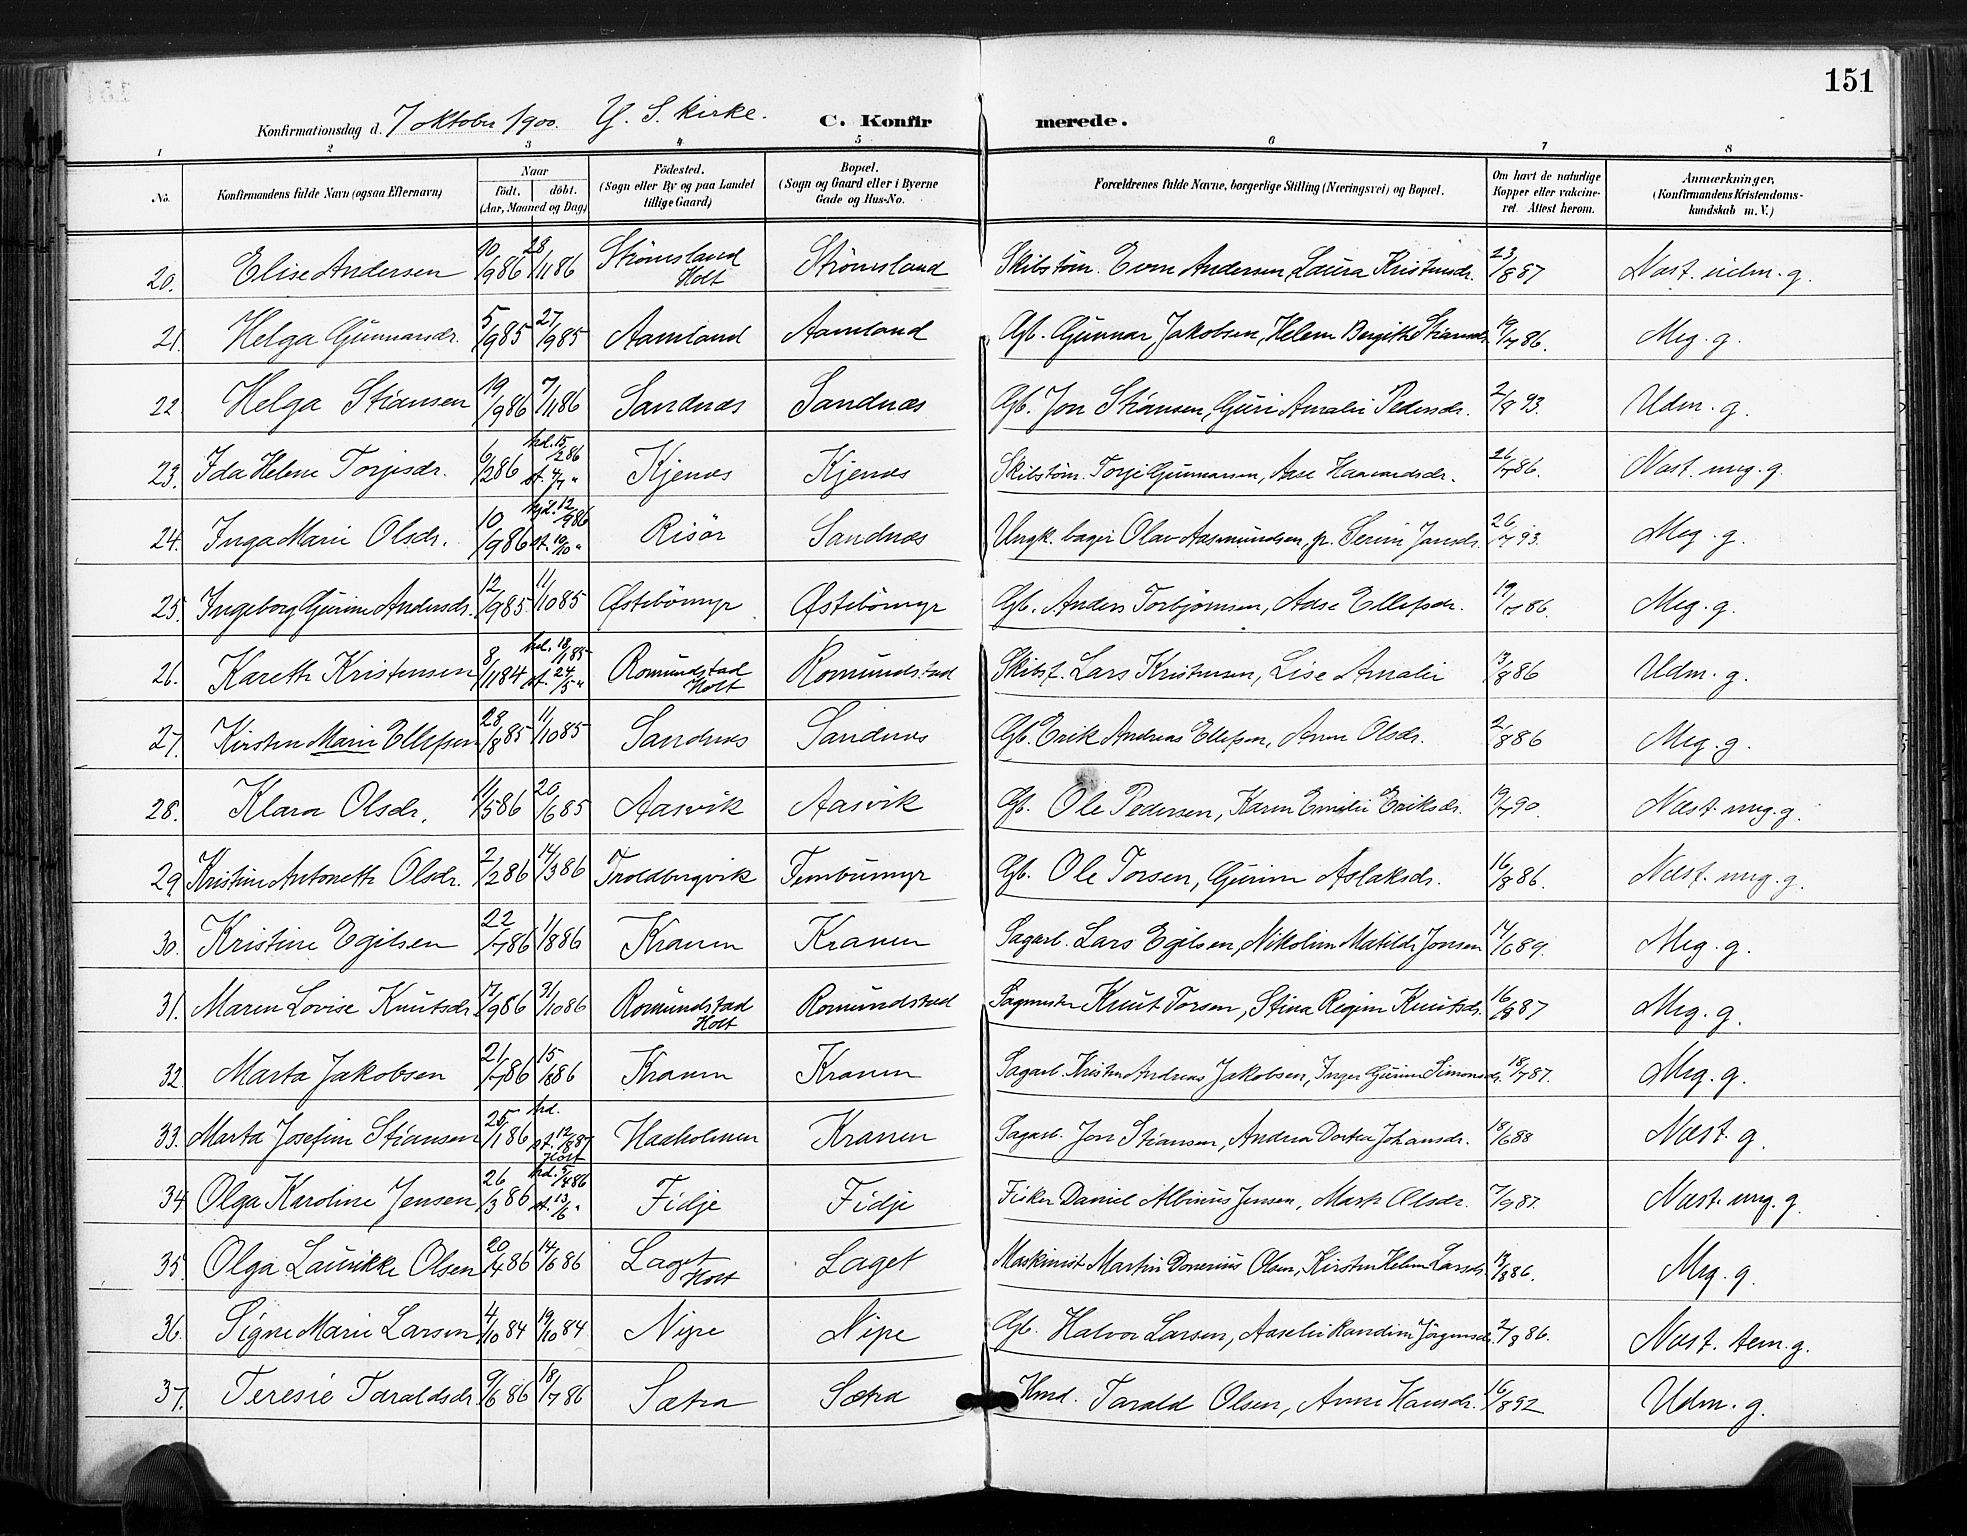 151
Konfirmationsdag d. 7 oktober 1900. Y. S. kirke. C. Konfirmerede.
1 2 3 4 5 6 7 8
No. Konfirmandens fulde Navn (ogsaa Efternavn) Naar født. døbt. (Aar, Maaned og Dag) Fødested. (Sogn eller By og paa Landet tillige Gaard) Bopæl. (Sogn og Gaard eller i Byerne Gade og Hus-No. Forældrenes fulde Navne, borgerlige Stilling (Næringsvei) og Bopæl. Om havt de naturlige Kopper eller vakcineret. Attest herom. Anmærkninger, (Konfirmandens Kristendomskundskab m. V.)
20. Elise Andersen 10/9 86 28/11 86 Strømsland Holt Strømsland Skibstøm. Even Andersen, Laura Kristensdr. 23/8 87 Næst. udm. g.
21. Helga Gunnarsdr. 5/9 85 27/9 85 Aamland Aamland Gb. Gunnar Jakobsen, Helene Bergitte Stiansdr. 19/7 86. Meg. g.
22 Helga Stiansen 19/9 86 7/11 86 Sandnæs Sandnæs Gb. Jon Stiansen, Guri Amalie Pedersdr. 2/8 93. Udm. g.
23. Ida Helene Torjisdr. 6/2 86 hd. 15/2 86 st. 4/7 " Kjenæs Kjenæs Skibstøm. Torje Gunnarsen, Aase Haavardsdr. 26/7 86. Næst. meg. g.
24. Inga Marie Olsdr. 10/9 86 hjd. 12/9 86 st. 10/10 " Risør Sandnæs Ungk. bager Olav Aasmundsen, p. Serine Jansdr. 26/7 93. Meg. g.
25. Ingeborg Gurine Andersdr. 12/9 85 11/10 85 Østebømyr Østebømyr Gb. Anders Torbjørnsen, Aase Ellefsdr. 19/7 86. Meg. g.
26. Kareth Kristensen 8/11 84 hd. 18/1 85 st. 24/5 " Romundstad Holt Romundstad Skibst. Lars Kristensen, Lise Amalie 13/8 86 Udm. g.
27. Kirsten Marie Ellefsen 28/8 85 11/10 85 Sandnæs Sandnæs Gb. Erik Andreas Ellefsen, Anne Olsdr. 2/8 86 Meg. g.
28. Klara Olsdr. 11/5 86 20/6 85 Aasvik Aasvik Gb. Ole Pedersen, Karen Emilie Eriksdr. 19/7 90. Næst. meg. g.
29. Kristine Antonette Olsdr. 2/2 86 14/3 86 Troldbergvik Gb. Ole Torsen, Gurine Aslaksdr. 16/8 86. Næst. meg. g.
30. Kristine Egilsen 22/7 86 1/8 86 Kranen Kranen Sagarb. Lars Egilsen, Nikoline Matilde Jonsen 14/6 89. Meg. g.
31. Maren Lovise Knutsdr. 17/9 86 31/10 86 Romundstad Holt Romundstad Sagmester Knut Torsen, Stina Regine Knutsdr. 16/8 87 Meg. g.
32. Marta Jakobsen 21/7 86 15/8 86 Kranen Kranen Sagarb. Kristen Andreas Jakobsen, Inger Gurine Simonsdr. 18/7 87. Meg. g.
33. Marta Josefine Stiansen 25/1 86 hd. st. 12/8 87 Holt Haaholmen Kranen Sagarb. Jon Stiansen, Andrea Dortea Johansdr. 18/6 88 Næst. g.
34 Olga Karoline Jensen 26/3 86 hd. 5/4 86 st. 13/6 " Fidje Fidje Fisker Daniel Albinus Jensen, Marte Olsdr. 7/9 87. Næst. meg. g.
35. Olga Laurikke Olsen 20/4 86 14/6 86 Laget Holt Laget Maskinist Martin Donerius Olsen, Kirsten Helene Larsdr. 13/8 86. Meg. g.
36. Signe Marie Larsen 4/10 84 19/10 84 Nipe Nipe Gb. Halvor Larsen, Aaselie Randine Jørgensdr. 2/8 86. Næst. tem. g.
37. Teresie Taraldsdr. 9/6 86 18/7 86 Sætra Sætra Hmd. Tarald Olsen, Anne Hansdr. 16/8 92 Udm. g.